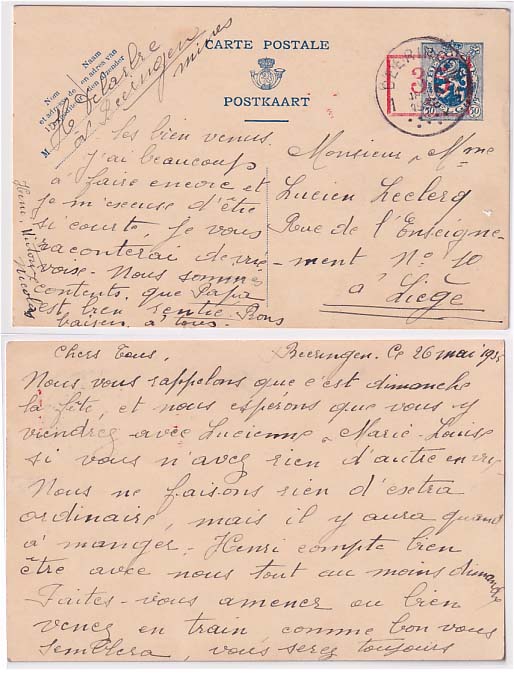 CARTE POSTALE
POSTKAART
Nom
et adresse de
l'expéditeur
Naam
en adres van
den afzender
M
à Beeringen
mines
BEERINGEN
Monsieur & Mme
Lucien Leclerq
Rue de l'Enseigne-
ment N° 10
à Liège
Chers Tous,
Beeringen. Ce 26 mai 1935
Nous vous rappelons que c'est dimanche
la fête, et nous espérons que vous y
viendrez avec Lucienne & Marie-Louise
si vous n'avez rien d'autre en vue
Nous ne faisons rien d'extra
ordinaire, mais il y aura quand
à manger. Henri compte bien
être avec nous tout au moins dimanche
Faites-vous amener ou bien
venez en train comme bon vous
semblera, vous serez toujours
les bien venus.
J'ai beaucoup
à faire encore et
je m'excuse d'être
si courte, je vous
raconterai de vive
voise. Nous sommes
contents, que Papa
est bien rentré. Bons
baisers à tous.
Henri, Victoire
Nicolas